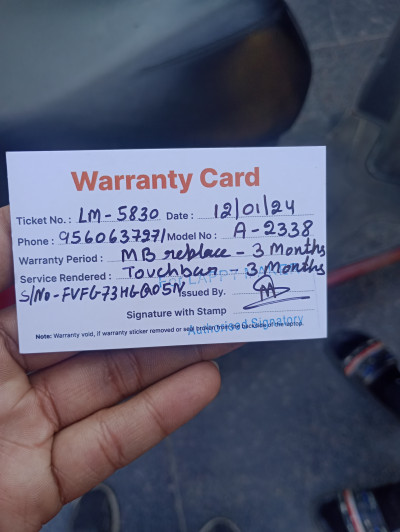 Warranty Card
Ticket No. : LM - 5830 Date : 12/01/24
Phone : 9560637271 Model No. : A - 2338
Warranty Period : MB replace - 3 Months
Service Rendered : Touchbar - 3 Months
S/No - FVFG73HGQ05N Issued By.
Signature with Stamp
Authorised Signatory
Note: Warranty void, if warranty sticker removed or seal broken from the backside of the laptop.